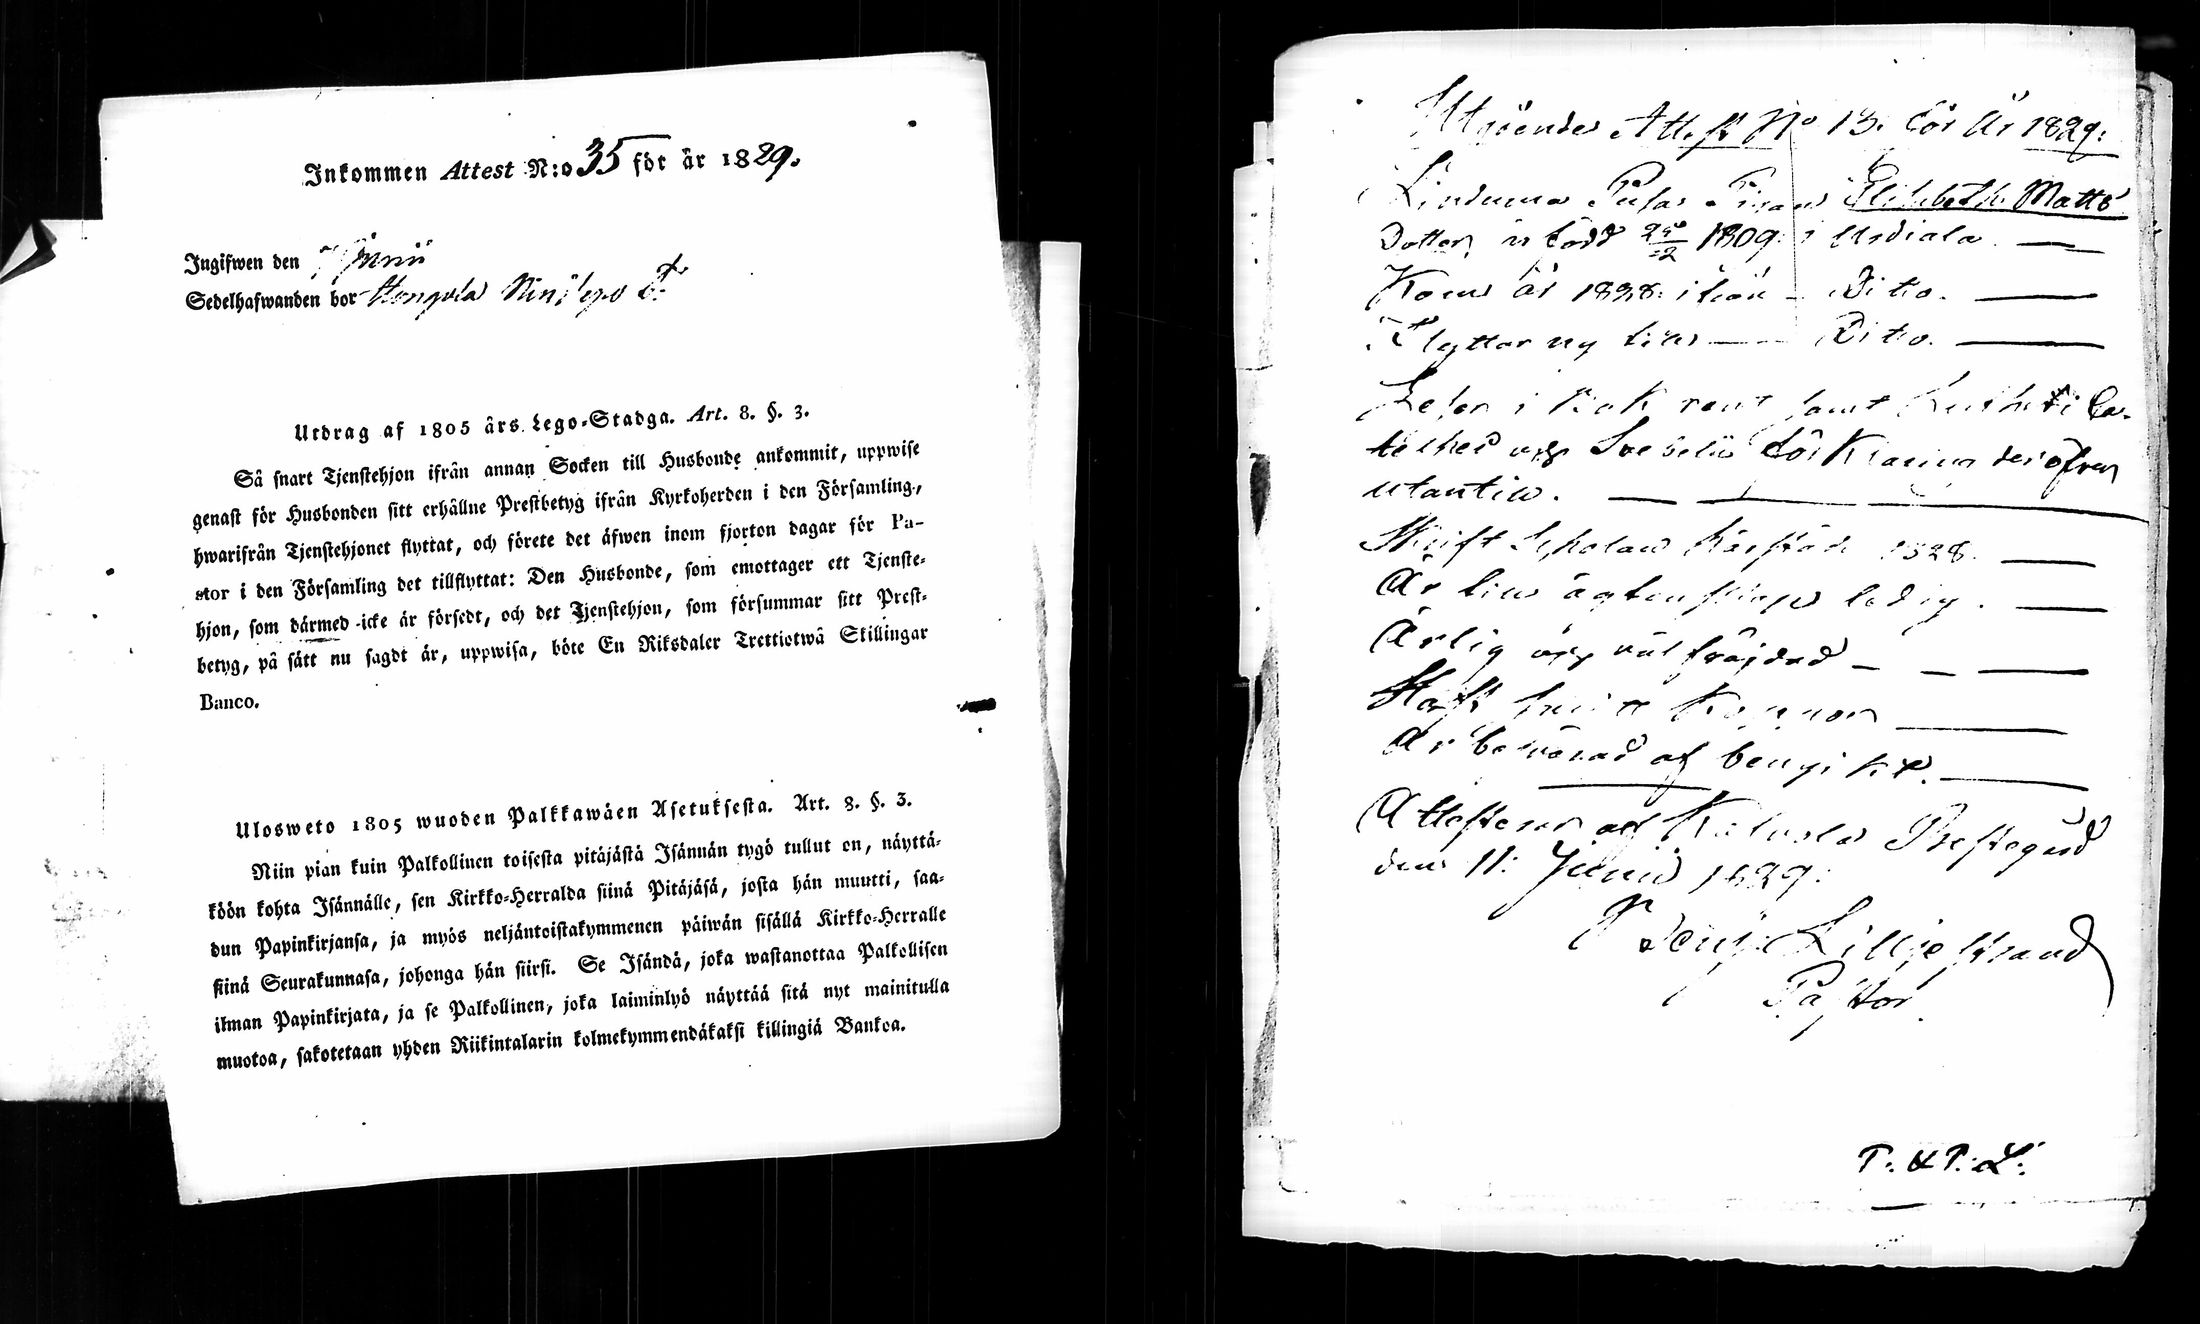 Inkommen Attest N:o 35 för år 1829.
Ingifwen den Junii
Sedelhafwanden bor
Utdrag af 1805 års Lego-Stadga. Art. 8. §. 3.
Så snart Tjenstehjon ifrån annan Socken till Husbonde ankommit, uppwise
genast för Husbonden sitt erhållne Prestbetyg ifrån Kyrkoherden i den Församling,
hwarifrån Tjenstehjonet flyttat, och förete det äfwen inom fjorton dagar för Pa-
stor i den Församling det tillflyttat: Den Husbonde, som emottager ett Tjenste-
hjon, som därmed icke är försedt, och det Tjenstehjon, som försummar sitt Prest-
betyg, på sätt nu sagdt är, uppwisa, böte En Riksdaler Trettiotwå Skillingar
Banco.
Ulosweto 1805 wuoden Palkkawäen Asetuksesta. Art. 8. §. 3.
Niin pian kuin Palkollinen toisesta pitäjästä Isännän tygö tullut on, näyttä-
köön kohta Isännälle, sen Kirkko-Herralda siinä Pitäjäsä, josta hän muutti, saa-
dun Papinkirjansa, ja myös neljäntoistakymmenen päiwän sisällä Kirkko-Herralle
siinä Seurakunnasa, johonga hän siirsi. Se Isändä, joka wastanottaa Palkollisen
ilman Papinkirjata, ja se Palkollinen, joka laiminlyö näyttää sitä nyt mainitulla
muotoa, sakotetaan yhden Riikintalarin kolmekymmendäkaksi killingiä Bankoa.
Utgöendes Attest No 13. för År 1829:
Pigan Elisabeth Matts
Dotter, är född 1809 i Urdiala
Kom år 1828 ifrån Ditto.
Flyttar nu till Ditto.
Läser i Bok rent samt Lutheri Ca-
teches och Svebelii Förklaring deröfver
utantill.
Skrift Scholan 1828.
Är till ägtenskap ledig.
Ärlig och väl fräjdad
Haft Koppor
Är af
Attesterar af Prestegård
den 11: Junii 1829:
Lilljestrand
Pastor
T: & P: L: